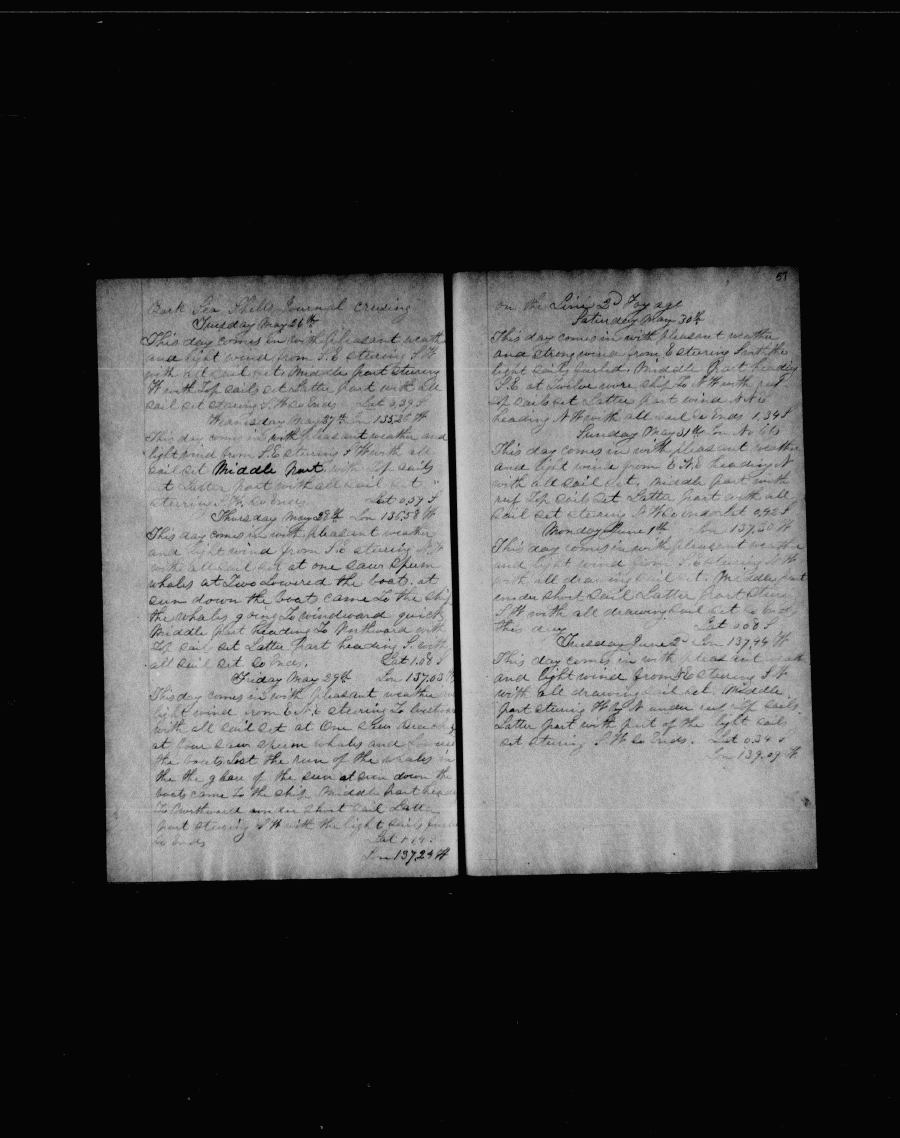 Bark Sea Shells Journal crusing
Tuesday May 26th
This day comes in with pleasant weath
and light wind from S.E stering S.W
with all sail set Middle part stering
W with Top sails set Latter part with all
sail set stering S.W So Ends Lat 0.39 S
Wednesday May 27th Lon 135.26 W
This day comes in with pleasant weather and
light wind from S.E stering S W with all
sail set Middle Part with Top sails
set Latter part with all sail set
stering S.W. So Ends Lat 0.39 S
Thursday May 28th Lon 136.58 W
This day comes in with pleasant weather
and light wind from S.E stering S.W
with all sail set at one saw Sperm
whales at Two Lowered the boats. at
sun down the boats came To the ship
the whales going To windward quick
Middle part heading To Northward with
Top sail set Latter Part heading S. with
all sail set So Ends. Lat 1.08 S
Friday May 29th Lon 137.03 W
This day comes in with pleasant weather
light wind from E.N.E stering To
with all sail set at One saw
at four saw sperm whales and
the boats Lost the run of the whales in
the the glare of the sun at sun down the
boats came To the ship Middle part
To Northward under short sail Latter
part stering S W with the light sails
So Ends Lat
Lon 137.24 W
57
on the Line 2d Voyage
Saturday May 30th
This day comes in with pleasant weather
and strong wind from E stering South the
light sails furled. Middle Part heading
S.E at Twelve wore ship to N W with reef
Top sails set Latter part wind N.N.E
heading N W with all sail So Ends 1.34 S
Sunday May 31th Lon No Obs
This day comes in with pleasant weather
and light wind from E.S.E heading N
with all sail set. Middle part with
reef Top sail set Latter part with all
sail set stering N.W So Ends Lat 0.42 S
Monday June 1th Lon 137.30 W
This day comes in with pleasant weather
and light wind from S.E stering W
with all drawing sail set. Middle part
under short sail Latter part stering
S W with all drawing sail set So Ends
this day Lat 0.08 S
Tuesday June 2d Lon 137.44 W
This day comes in with pleasant weath
and light wind from S.E stering S W
with all drawing sail set. Middle
part stering W by N under reef Top sails.
Latter part with part of the light sails
set stering S.W So Ends. Lat 0.34 S
Lon 139.09 W.